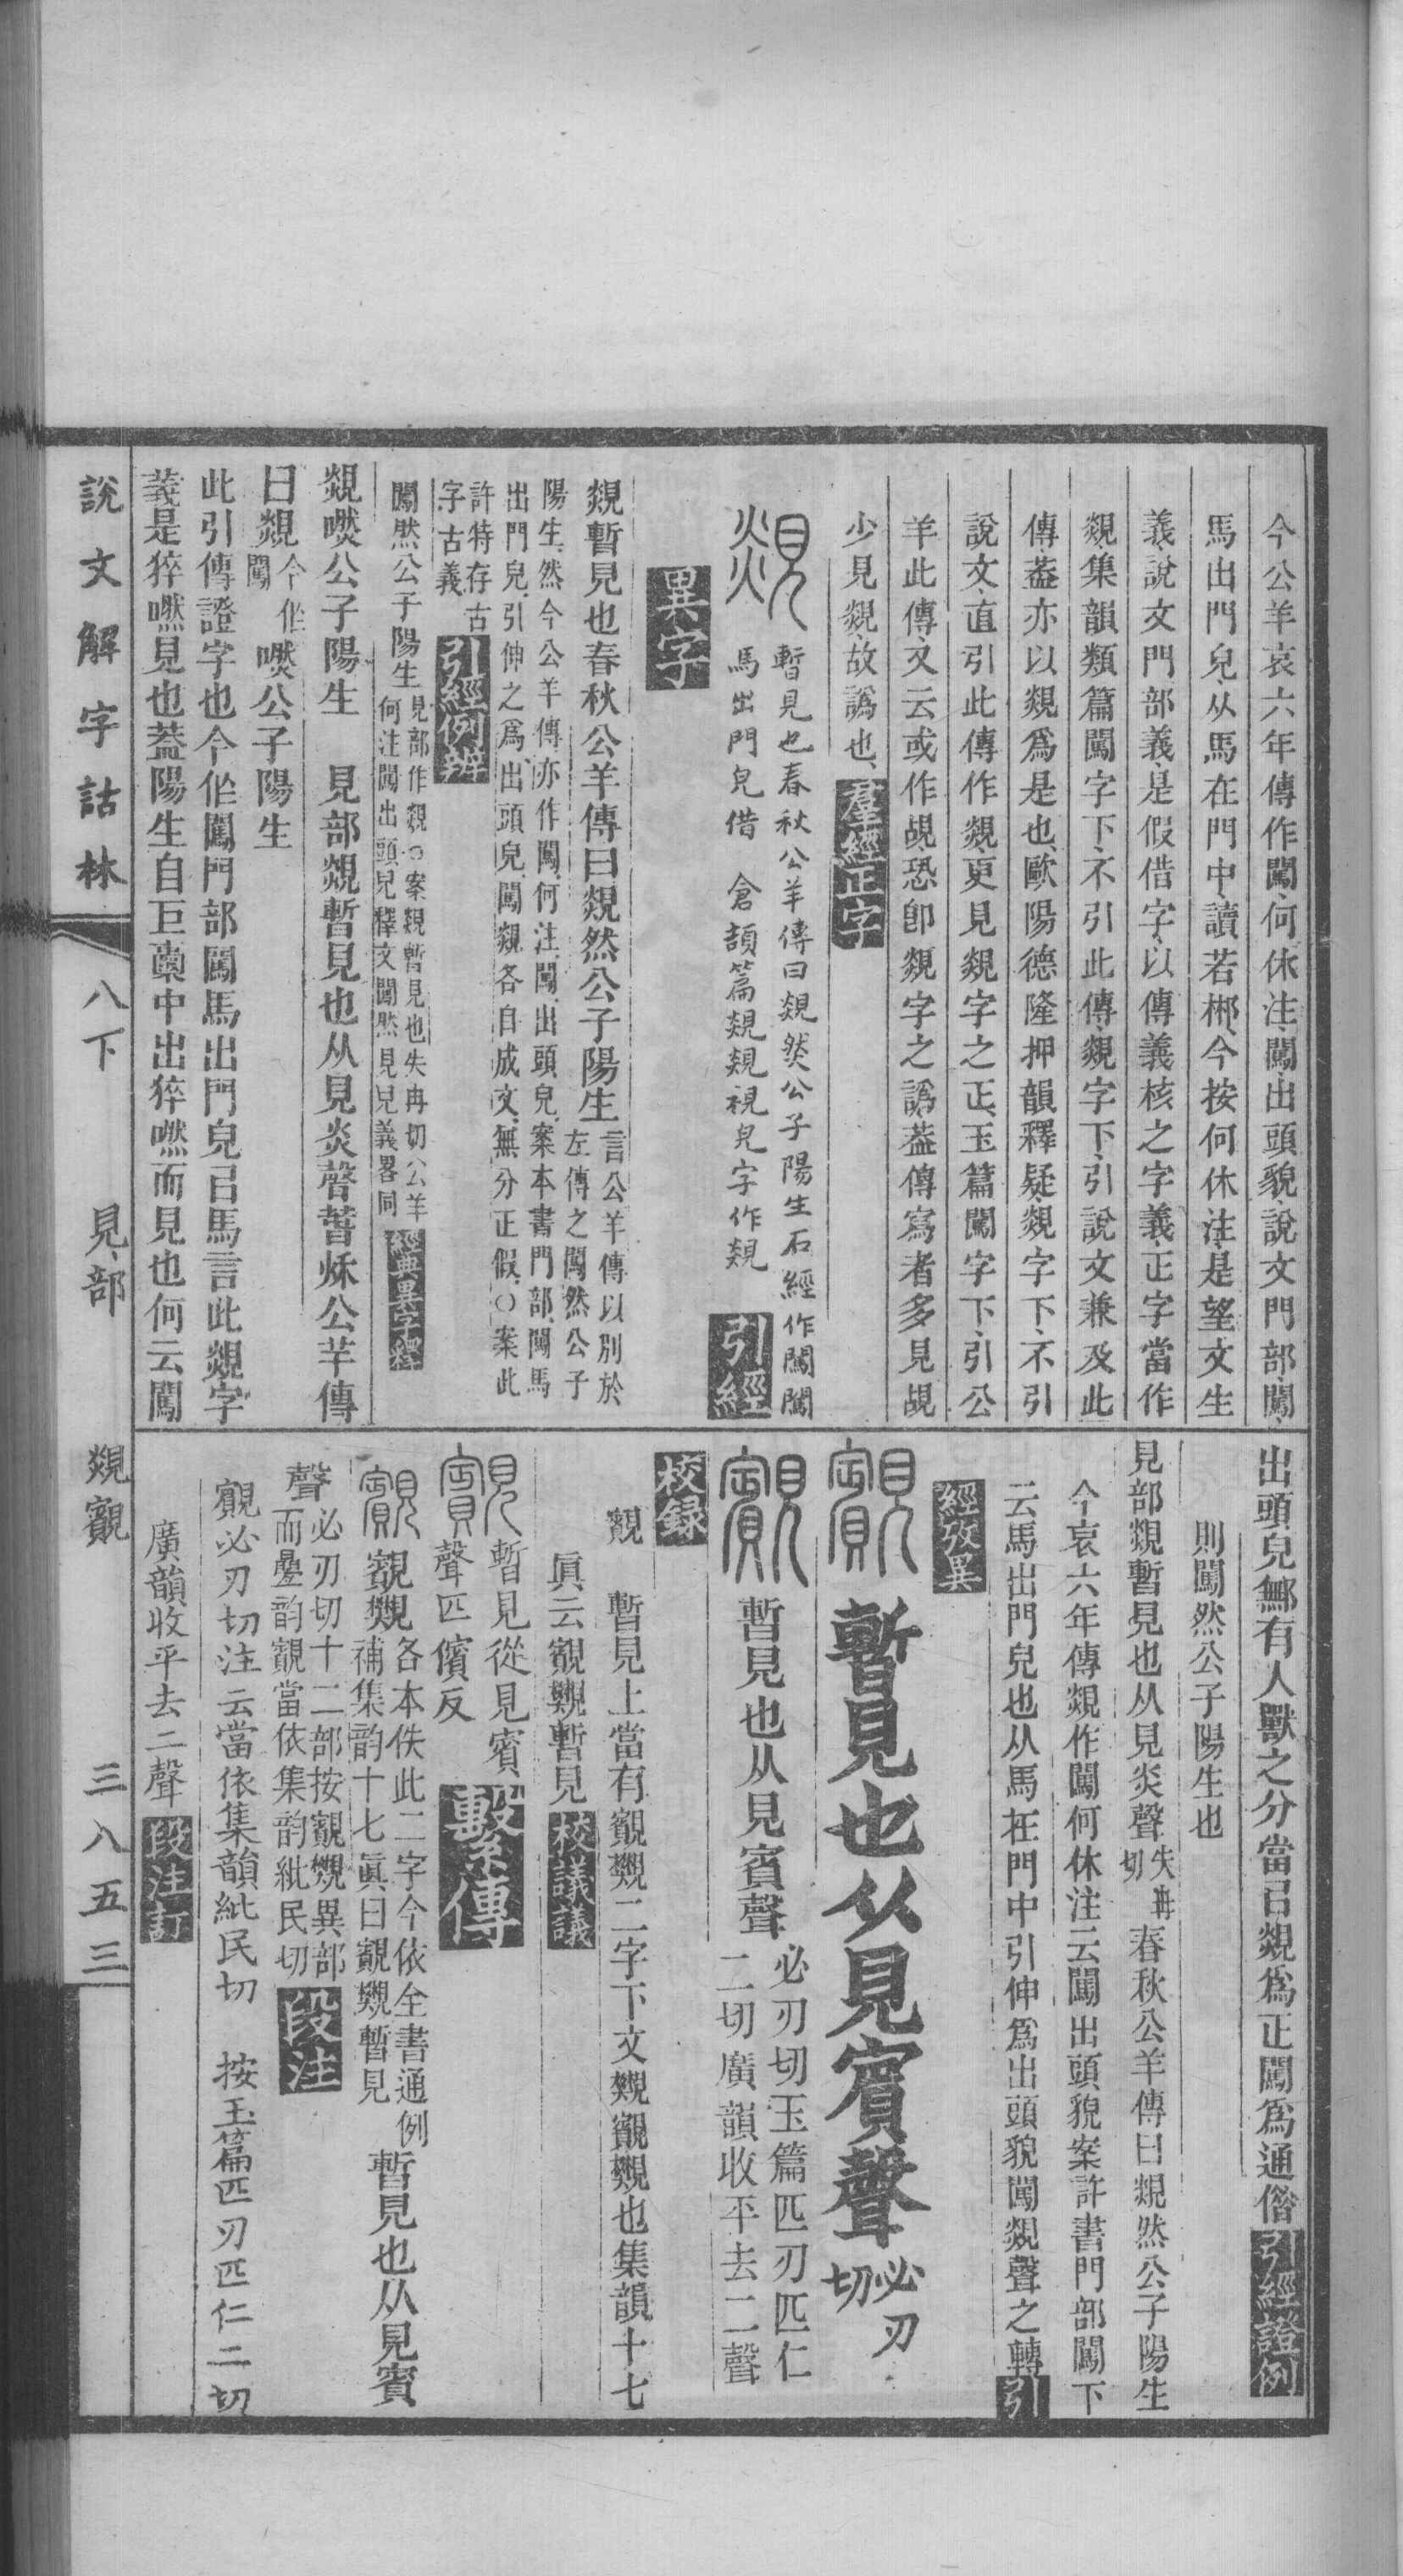 今公羊哀六年傳作闖、何休注、闖、出頭貌、說文門部、闖、
馬出門皃、从馬在門中、讀若郴、今按何休注、是望文生
義、說文門部義、是假借字、以傳義核之、字義、正字當作
覢、集韻類篇闖字下、不引此傳、覢字下、引說文兼及此
傳、葢亦以覢爲是也、歐陽德隆押韻釋疑、覢字下、不引
說文、直引此傳、作覢、更見覢字之正、玉篇闖字下、引公
羊此傳、又云或作覘、恐卽覢字之譌、葢傳寫者多見覘
少見覢、故譌也、羣經正字
覢 暫見也春秋公羊傳曰覢然公子陽生石經作闖闖
馬出門皃借 倉頡篇覢覢視皃字作覢 引經
異字
覢暫見也春秋公羊傳曰覢然公子陽生 言公羊傳以別於
左傳之闖然公子
陽生、然今公羊傳亦作闖、何注、闖、出頭皃、案本書門部、闖、馬
出門皃、引伸之爲出頭皃、闖覢各自成文、無分正假、○案此
許特存古
字古義 引經例辨
闖然公子陽生 見部作覢○案覢暫見也失冉切公羊
何注闖出頭皃釋文闖然見皃義畧同 經典異字釋
覢噗公子陽生 見部覢暫見也从見炎聲萅秌公羊傳
曰覢 今作
闖 噗公子陽生
此引傳證字也今作闖門部闖馬出門皃㠯馬言此覢字
義是猝嘫見也葢陽生自巨橐中出猝嘫而見也何云闖
說文解字詁林 八下 見部 覢覿 三八五三
出頭皃無有人獸之分當㠯覢爲正闖爲通借 引經證例
則闖然公子陽生也
見部覢暫見也从見炎聲 失冉
切 春秋公羊傳曰覢然公子陽生
今哀六年傳覢作闖何休注云闖出頭貌案許書門部闖下
云馬出門皃也从馬在門中引伸爲出頭貌闖覢聲之轉 引
經攷異
覿 暫見也从見賓聲 必刃
切
覿 暫見也从見賓聲 必刃切玉篇匹刃匹仁
二切廣韻收平去二聲
校録
覿 暫見上當有覿覭二字下文覭覿覭也集韻十七
眞云覿覭暫見 校議議
覿 暫見從見賓
聲匹儐反 繫傳
覿 覿覭 各本佚此二字今依全書通例
補集韵十七眞曰覿覭暫見 暫見也从見賓
聲 必刃切十二部按覿覭異部
而曡韵覿當依集韵紕民切 段注
覿必刃切注云當依集韻紕民切 按玉篇匹刃匹仁二切
廣韻收平去二聲 段注訂